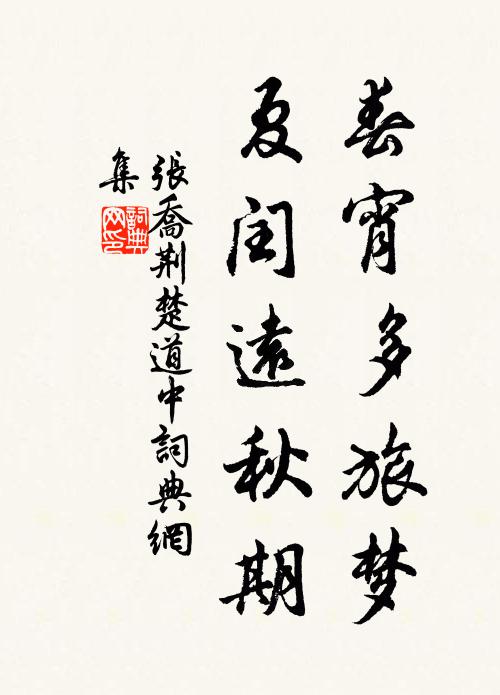 春宵多旅梦
夏闰遠秋期
張喬荆楚道中詞典網
集
詞典
网印